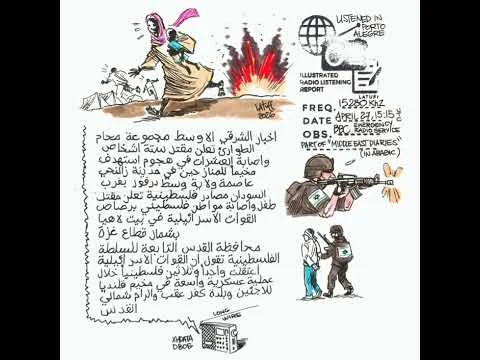 LISTENED IN
PORTO
ALEGRE
LATUFF
2026
ILLUSTRATED
RADIO LISTENING
REPORT
LATUFF
FREQ. 15280 KHZ
DATE APRIL, 27, 15:15
OBS. BBC EMERGENCY
RADIO SERVICE
PART OF "MIDDLE EAST DIARIES"
(IN ARABIC)
اخبار الشرقي الاوسط مجموعة محام
الطوارئ تعلن مقتل ستة اشخاص
واصابة العشرات في هجوم استهدف
مخيما للمنازحين في مدينة زالنجي
عاصمة ولاية وسط برفور بغرب
السودان مصادر فلسطينية تعلن مقتل
طفل واصابة مواطن فلسطيني برصاص
القوات الاسرائيلية في بيت لاهيا
بشمال قطاع غزة
محافظة القدس التابعة للسلطة
الفلسطينية تقول ان القوات الاسرائيلية
اعتقلت واحدا وثلاثين فلسطينيا خلال
عملية عسكرية واسعة في مخيم قلنديا
للاجئين وبلدة كفر عقب والرام شمالي
القدس
LONG
WIRE
XHDATA
D808